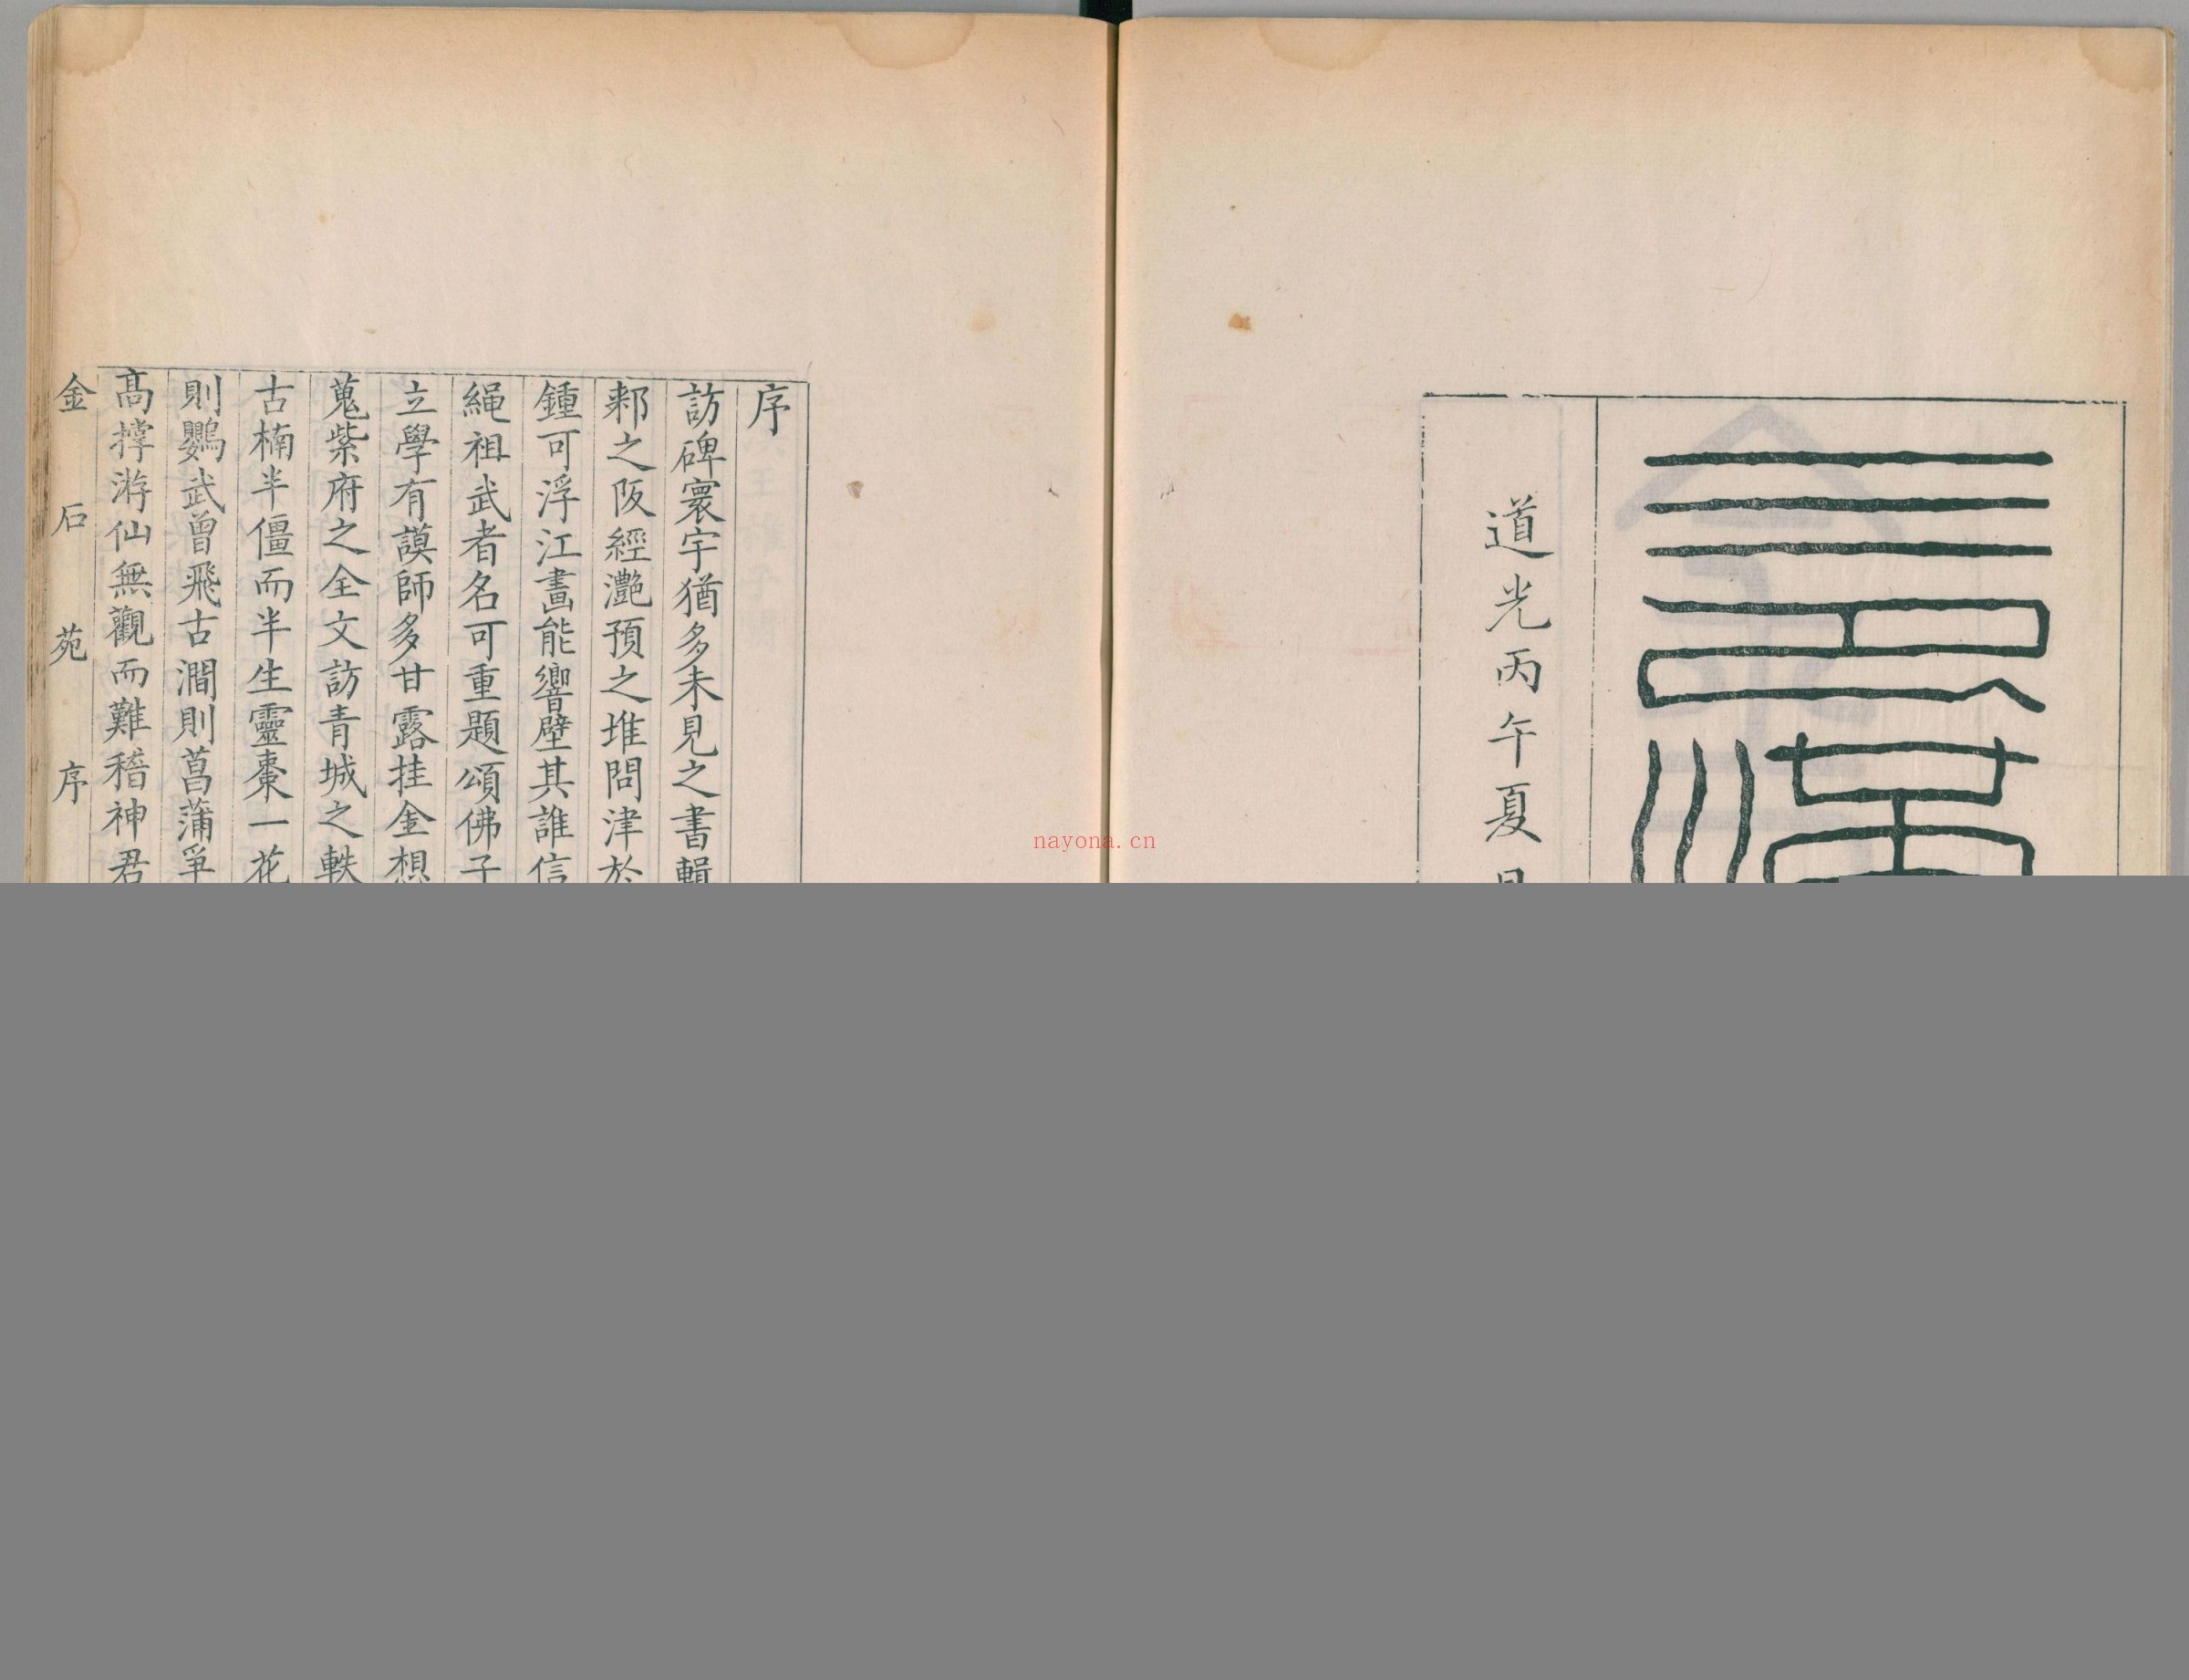 道光丙午夏
序
訪碑寰宇猶多未見之書輯
郲之阪經灔預之堆問津於
鍾可浮江畫能響壁其誰信
繩祖武者名可重題頌佛子
立學有謨師多甘露挂金想
蒐紫府之全文訪青城之軼
古楠半僵而半生靈棗一花
則鸚武曾飛古澗則菖蒲爭
高撑游仙無觀而難稽神君
金石苑 序
nayona.cn